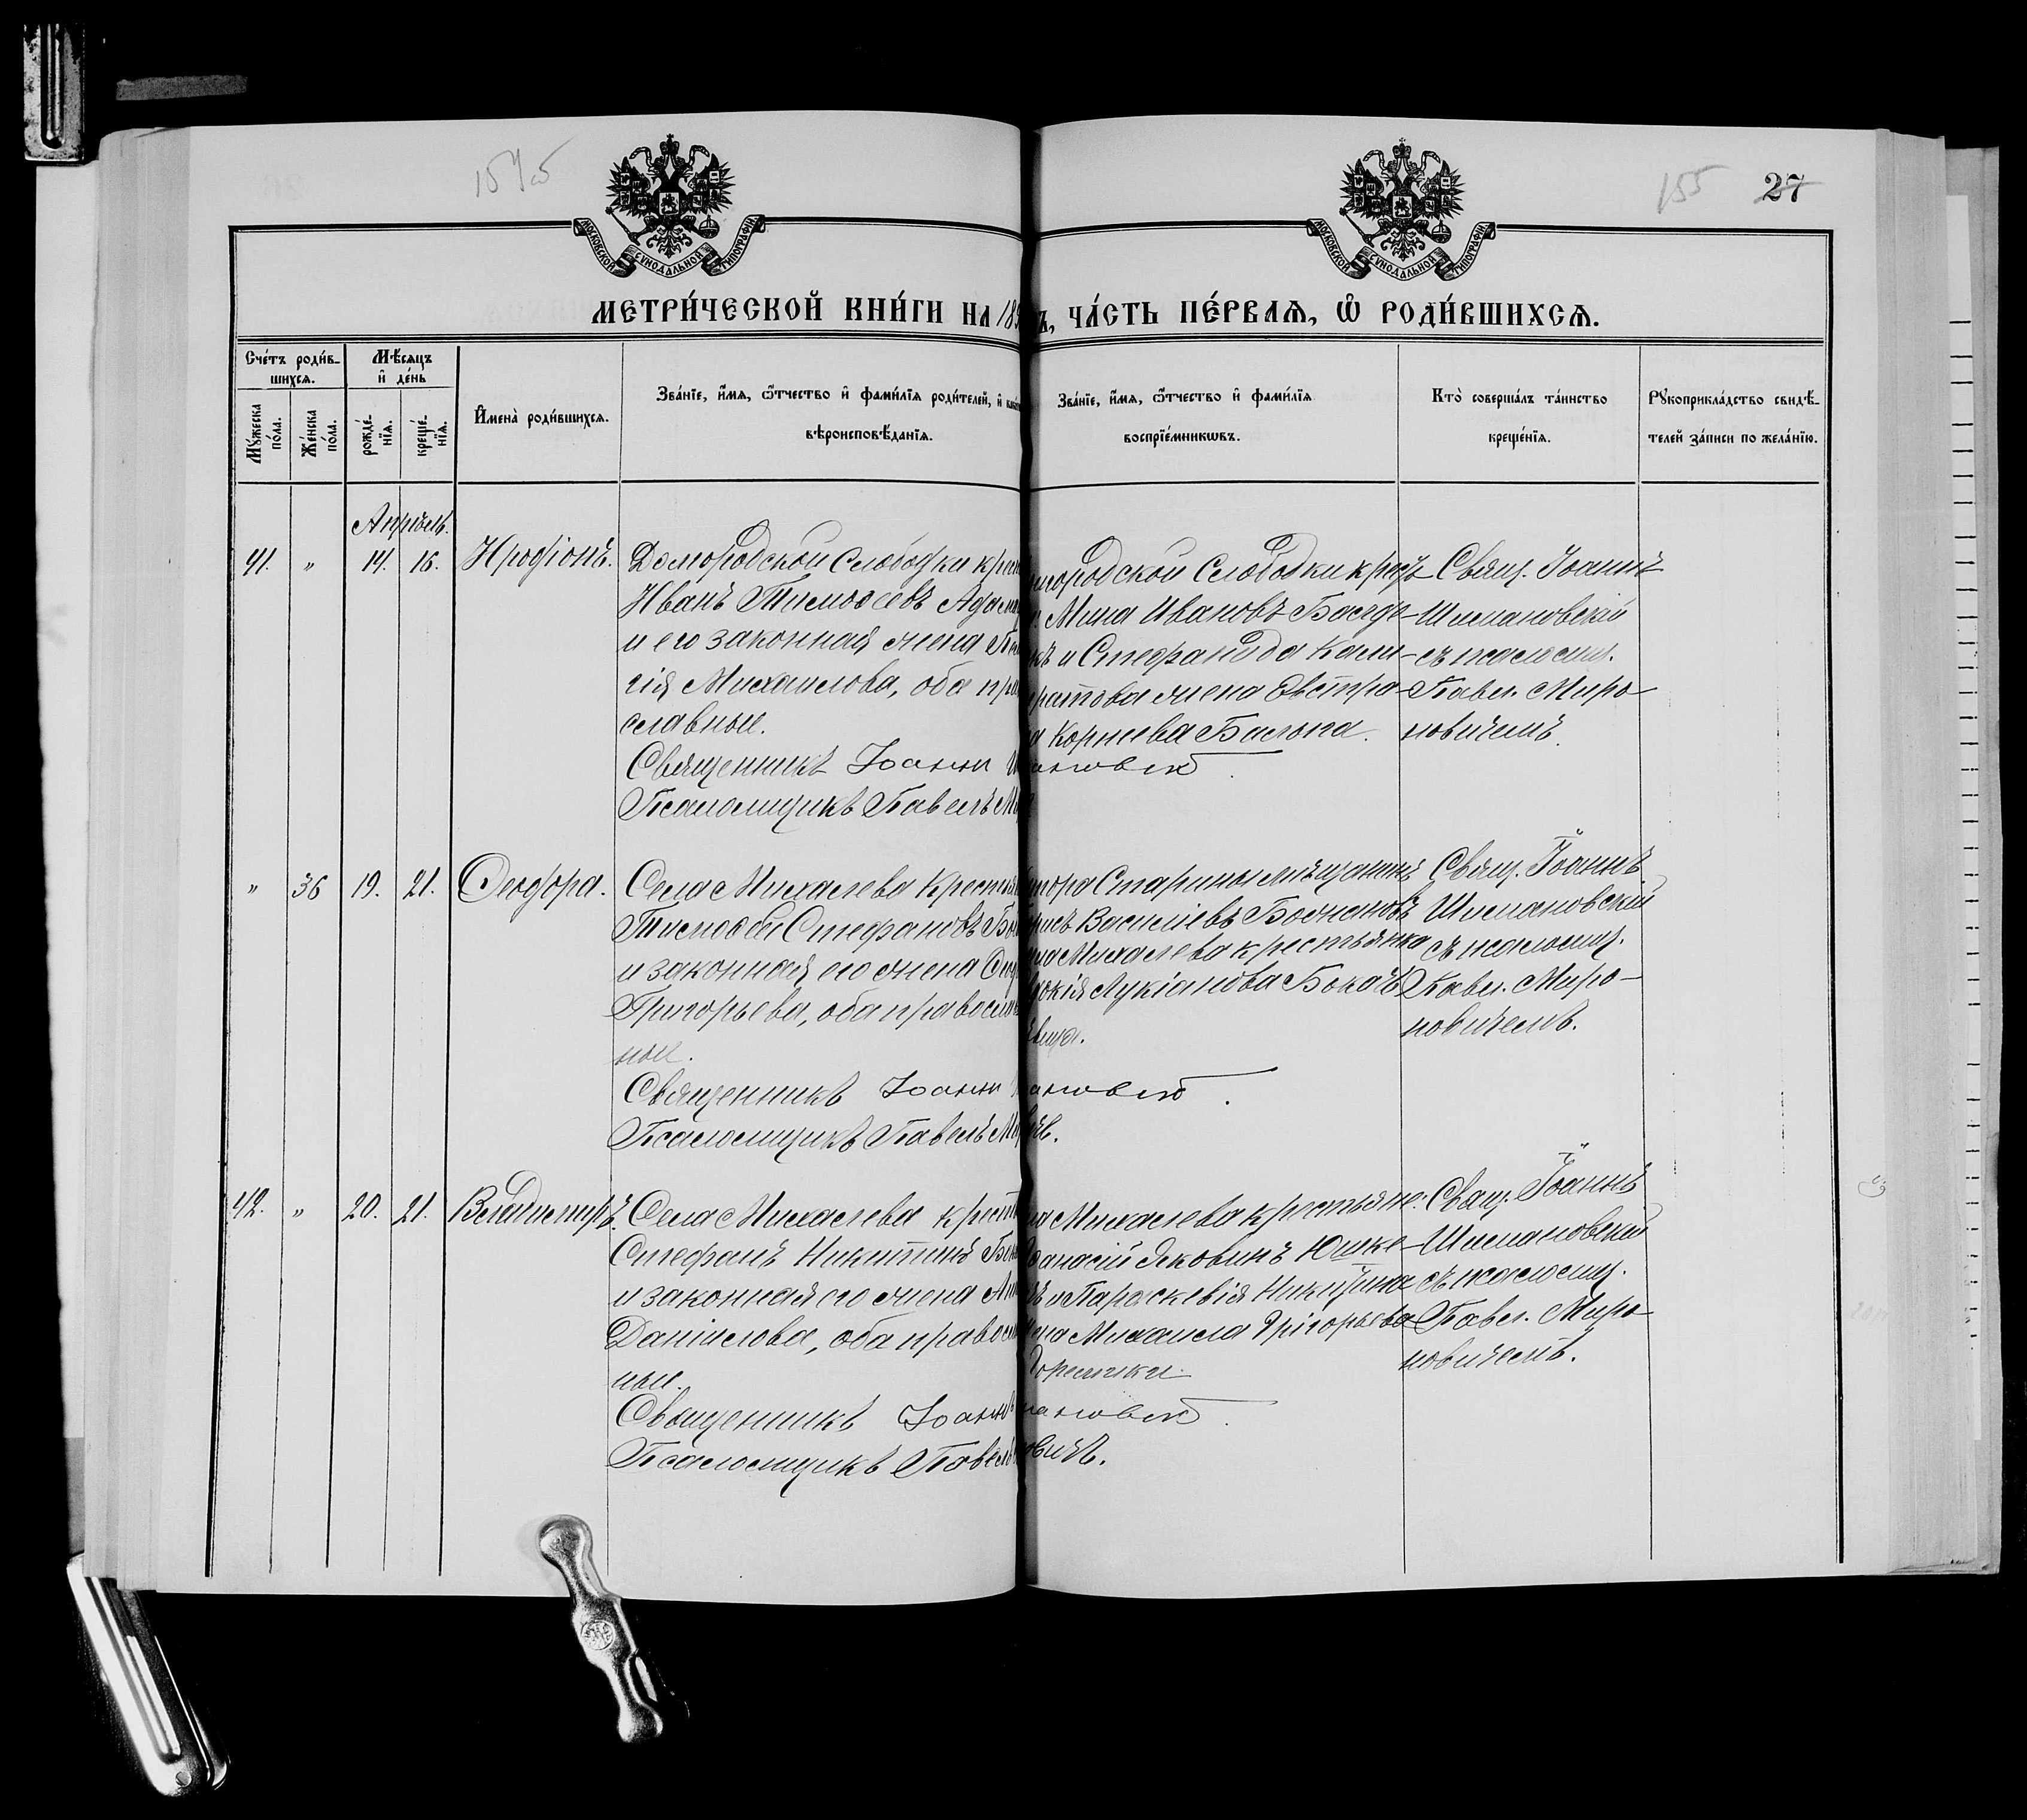 155
27
МОСКОВСКОЙ СѴНОДАЛЬНОЙ ТИПОГРАФІИ
МОСКОВСКОЙ СѴНОДАЛЬНОЙ ТИПОГРАФІИ
МЕТРИ́ЧЕСКОЙ КНИ́ГИ НА 189
Ъ, ЧА́СТЬ ПЕ́РВАѦ, Ѿ РОДИ́ВШИХСѦ.
Сче́тъ роди́в-
шихсѧ.
Мѣ́сѧцъ
и де́нь
Мꙋ́жеска
по́ла.
Же́нска
по́ла.
рожде́-
нїѧ.
креще́-
нїѧ.
И҆мена̀ роди́вшихсѧ.
Зва́нїе, и҆́мѧ, ѻ҆́тчество и҆ фами́лїѧ роди́телей, и҆
вѣроисповѣ́данїѧ.
Зва́нїе, и҆́мѧ, ѻ҆́тчество и҆ фами́лїѧ
воспрїе́мникѡвъ.
Кто̀ соверша́лъ та́инство
креще́нїѧ.
Рꙋкоприкла́дство свидѣ́-
телей за́писи по жела́нїю.
Апрѣль.
41. " 14. 16. Иродіонъ.
Домородской Слободки крес
Иванъ Тимоѳеевъ Адам
и его законная жена Пел
гія Михаилова, оба пра
славные.
Священникъ Іоанн
Псаломщикъ Павелъ М
городской Слободки крес
Мина Ивановъ
и Стефанида Кали-
ратова жена Евстра-
Корнеева
ановскій
Свящ. Іоаннъ
Шимановскій
съ псаломщ.
Павл. Миро-
новичемъ.
" 36 19. 21. Ѳеодора.
Села Михалева Крестья
Тимоѳей Стефановъ Бо
и законная его жена
Григорьева, оба правосла
ные.
Священникъ Іоанн
Псаломщикъ Павелъ Ми
Старины мѣщанинъ
Василіевъ
Михалева крестьянка
Лукіанова
ановскій
Свящ. Іоаннъ
Шимановскій
съ псаломщ.
Павл. Миро-
новичемъ.
42. " 20. 21. Владиміръ.
Села Михалева крест
Стефанъ Никитинъ
и законная его жена
Даніилова, оба правосл
ные.
Священникъ Іоанн
Псаломщикъ Павелъ
Михалева крестьяне:
Яковинъ Юшке-
и Параскевія Никитина
жена Михаила Григорьева
ановскій
овичъ.
Свящ. Іоаннъ
Шимановскій
съ псаломщ.
Павл. Миро-
новичемъ.